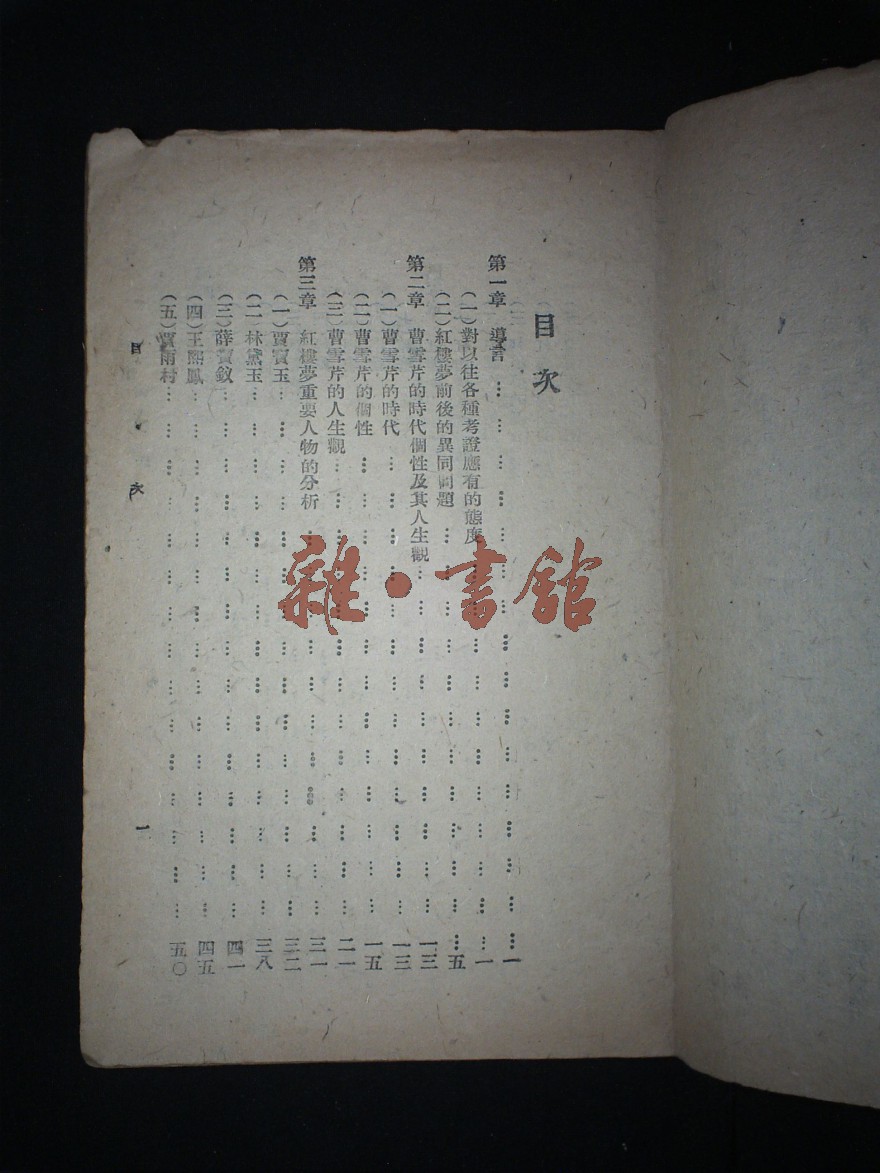 目次
第一章 導言 … … … … … … … … … … … … … … … 一
(一)對以往各種考證應有的態度 … … … … … … … … 一
(二)紅樓夢前後的異同問題 … … … … … … … … … 五
第二章 曹雪芹的時代個性及其人生觀 … … … … … … … … 一三
(一)曹雪芹的時代 … … … … … … … … … … … 一三
(二)曹雪芹的個性 … … … … … … … … … … … 一五
(三)曹雪芹的人生觀 … … … … … … … … … … … 二一
第三章 紅樓夢重要人物的分析 … … … … … … … … … 三一
(一)賈寶玉 … … … … … … … … … … … … … 三二
(二)林黛玉 … … … … … … … … … … … … … 三八
(三)薛寶釵 … … … … … … … … … … … … … 四一
(四)王熙鳳 … … … … … … … … … … … … … 四五
(五)賈雨村 … … … … … … … … … … … … … 五〇
目次 一
雜·書館